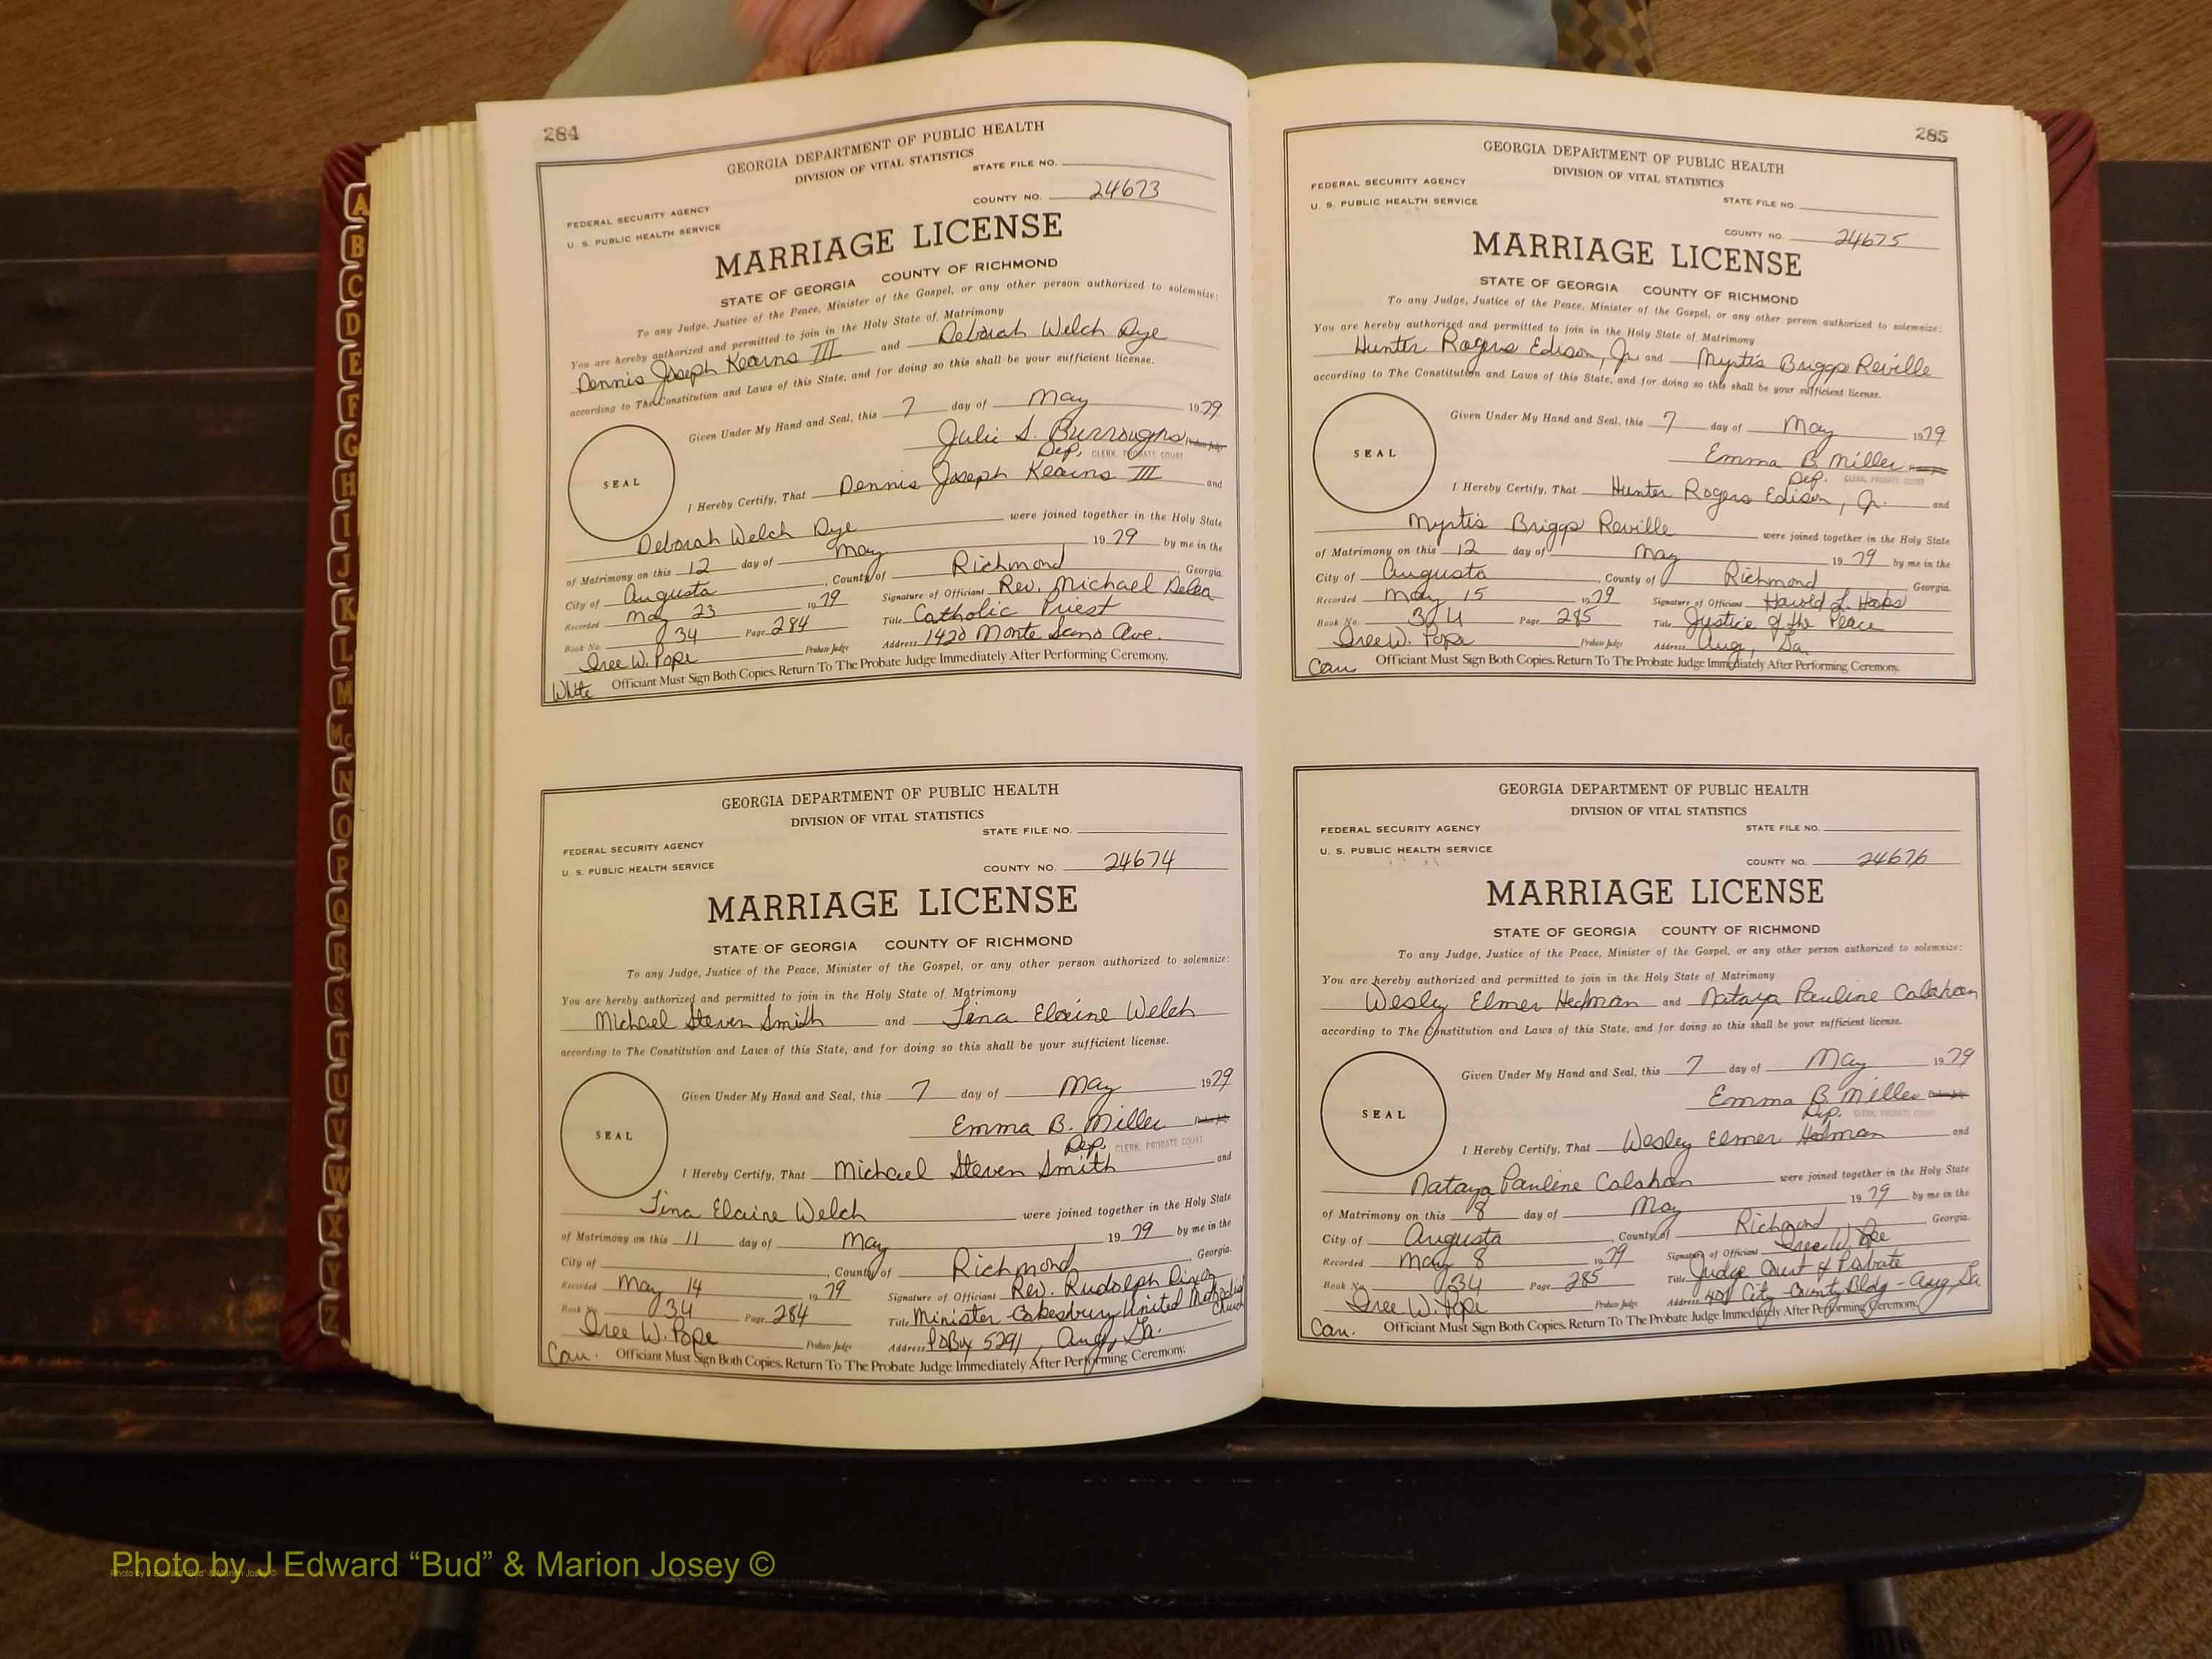 284
GEORGIA DEPARTMENT OF PUBLIC HEALTH
DIVISION OF VITAL STATISTICS
STATE FILE NO.
FEDERAL SECURITY AGENCY
COUNTY NO. 24673
U. S. PUBLIC HEALTH SERVICE
MARRIAGE LICENSE
STATE OF GEORGIA COUNTY OF RICHMOND
To any Judge, Justice of the Peace, Minister of the Gospel, or any other person authorized to solemnize:
You are hereby authorized and permitted to join in the Holy State of Matrimony
Dennis Joseph Kearns III and Deborah Welch Dye
according to The Constitution and Laws of this State, and for doing so this shall be your sufficient license.
Given Under My Hand and Seal, this 7 day of May 1979
Julie S. Burroughs Probate Judge
Dep. CLERK, PROBATE COURT
SEAL
I Hereby Certify, That Dennis Joseph Kearns III and
Deborah Welch Dye were joined together in the Holy State
of Matrimony on this 12 day of May 1979 by me in the
City of Augusta, County of Richmond, Georgia.
Recorded May 23 1979 Signature of Officiant Rev. Michael
Book No. 34 Page 284 Title Catholic Priest
Iree W. Pope Probate Judge Address 1420 Monte Sano Ave.
White Officiant Must Sign Both Copies. Return To The Probate Judge Immediately After Performing Ceremony.
GEORGIA DEPARTMENT OF PUBLIC HEALTH
DIVISION OF VITAL STATISTICS
STATE FILE NO.
FEDERAL SECURITY AGENCY
U. S. PUBLIC HEALTH SERVICE
COUNTY NO. 24674
MARRIAGE LICENSE
STATE OF GEORGIA COUNTY OF RICHMOND
To any Judge, Justice of the Peace, Minister of the Gospel, or any other person authorized to solemnize:
You are hereby authorized and permitted to join in the Holy State of Matrimony
Michael Steven Smith and Tina Elaine Welch
according to The Constitution and Laws of this State, and for doing so this shall be your sufficient license.
Given Under My Hand and Seal, this 7 day of May 1979
Emma B. Miller Probate Judge
Dep. CLERK, PROBATE COURT
SEAL
I Hereby Certify, That Michael Steven Smith and
Tina Elaine Welch were joined together in the Holy State
of Matrimony on this 11 day of May 1979 by me in the
City of , County of Richmond, Georgia.
Recorded May 14 1979 Signature of Officiant Rev. Rudolph Dixon
Book No. 34 Page 284 Title Minister Cokesbury United Methodist Church
Iree W. Pope Probate Judge Address PO Box 5291, Aug, Ga.
Cau. Officiant Must Sign Both Copies. Return To The Probate Judge Immediately After Performing Ceremony.
285
GEORGIA DEPARTMENT OF PUBLIC HEALTH
DIVISION OF VITAL STATISTICS
FEDERAL SECURITY AGENCY
U. S. PUBLIC HEALTH SERVICE
STATE FILE NO.
COUNTY NO. 24675
MARRIAGE LICENSE
STATE OF GEORGIA COUNTY OF RICHMOND
To any Judge, Justice of the Peace, Minister of the Gospel, or any other person authorized to solemnize:
You are hereby authorized and permitted to join in the Holy State of Matrimony
Hunter Rogers Edison, Jr. and Myrtis Briggs Reville
according to The Constitution and Laws of this State, and for doing so this shall be your sufficient license.
Given Under My Hand and Seal, this 7 day of May 1979
Emma B. Miller
Dep. CLERK, PROBATE COURT
SEAL
I Hereby Certify, That Hunter Rogers Edison, Jr. and
Myrtis Briggs Reville were joined together in the Holy State
of Matrimony on this 12 day of May 1979 by me in the
City of Augusta, County of Richmond, Georgia.
Recorded May 15 1979 Signature of Officiant Harold L.
Book No. 34 Page 285 Title Justice of the Peace
Iree W. Pope Probate Judge Address Aug, Ga.
Cau Officiant Must Sign Both Copies. Return To The Probate Judge Immediately After Performing Ceremony.
GEORGIA DEPARTMENT OF PUBLIC HEALTH
DIVISION OF VITAL STATISTICS
FEDERAL SECURITY AGENCY
STATE FILE NO.
U. S. PUBLIC HEALTH SERVICE
COUNTY NO. 24676
MARRIAGE LICENSE
STATE OF GEORGIA COUNTY OF RICHMOND
To any Judge, Justice of the Peace, Minister of the Gospel, or any other person authorized to solemnize:
You are hereby authorized and permitted to join in the Holy State of Matrimony
Wesly Elmer Hedman and Nataya Pauline Calahan
according to The Constitution and Laws of this State, and for doing so this shall be your sufficient license.
Given Under My Hand and Seal, this 7 day of May 1979
Emma B. Miller
Dep. CLERK, PROBATE COURT
SEAL
I Hereby Certify, That Wesley Elmer Hedman and
Nataya Pauline Calahan were joined together in the Holy State
of Matrimony on this 8 day of May 1979 by me in the
City of Augusta, County of Richmond Georgia.
Recorded May 8 1979 Signature of Officiant Iree W. Pope
Book No. 34 Page 285 Title Judge Court of Probate
Iree W. Pope Probate Judge Address 401 City-County Bldg - Aug, Ga
Cau. Officiant Must Sign Both Copies. Return To The Probate Judge Immediately After Performing Ceremony.
A
B
C
D
E
F
G
H
I
J
K
L
M
Mc
N
O
P
Q
R
S
T
U
V
W
X
Y
Z
Photo by J Edward “Bud” & Marion Josey ©
Photo by J Edward "Bud" & Marion Josey ©